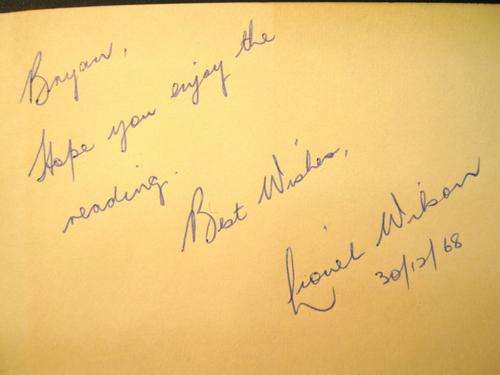 Bryan,
Hope you enjoy the
reading.
Best Wishes,
Lionel Wilson
30/12/68